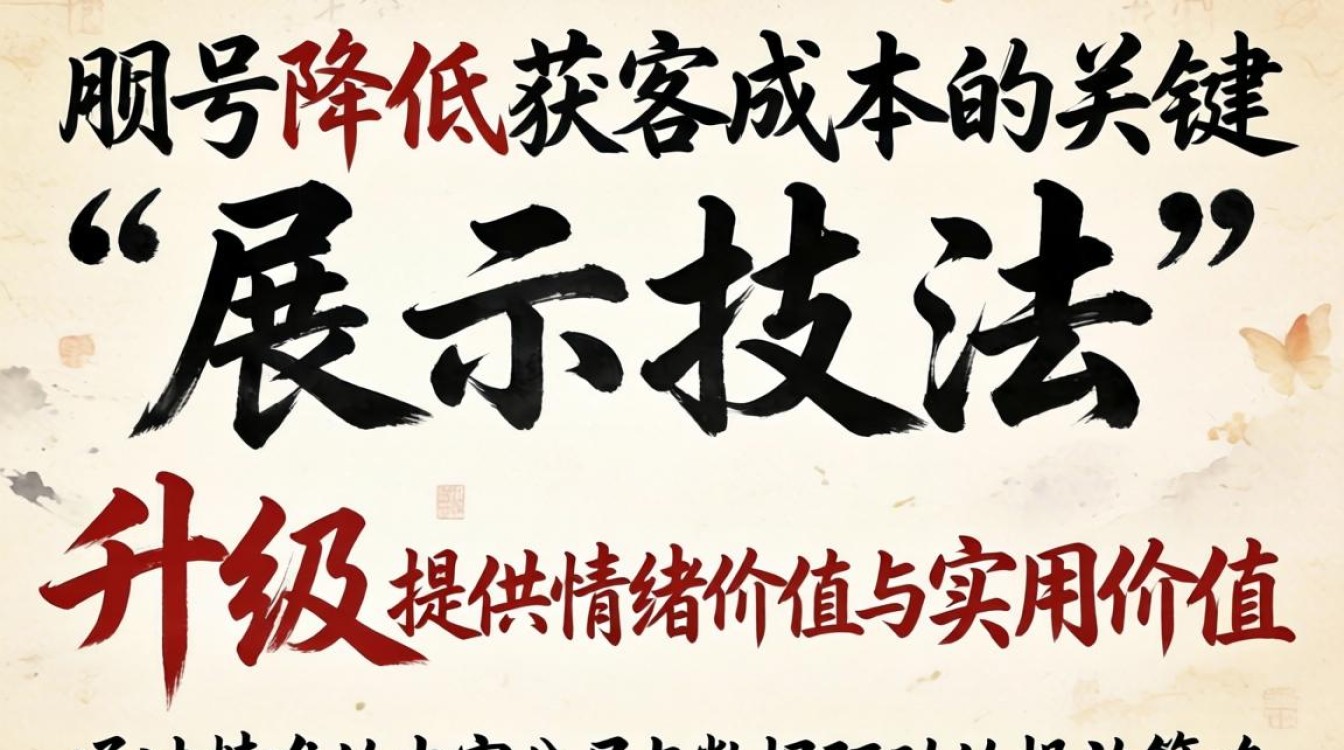 号降低获客成本的关键
“展示技法”
升级 提供情绪价值与实用价值